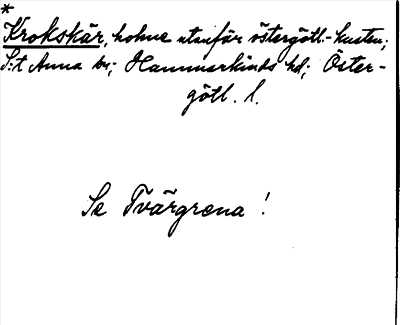 *
Krokskär, holme utanför östergötl.-kusten;
S:t Anna sn; Hammarkinds hd; Öster-
götl. l.
Se Tvärgrena!